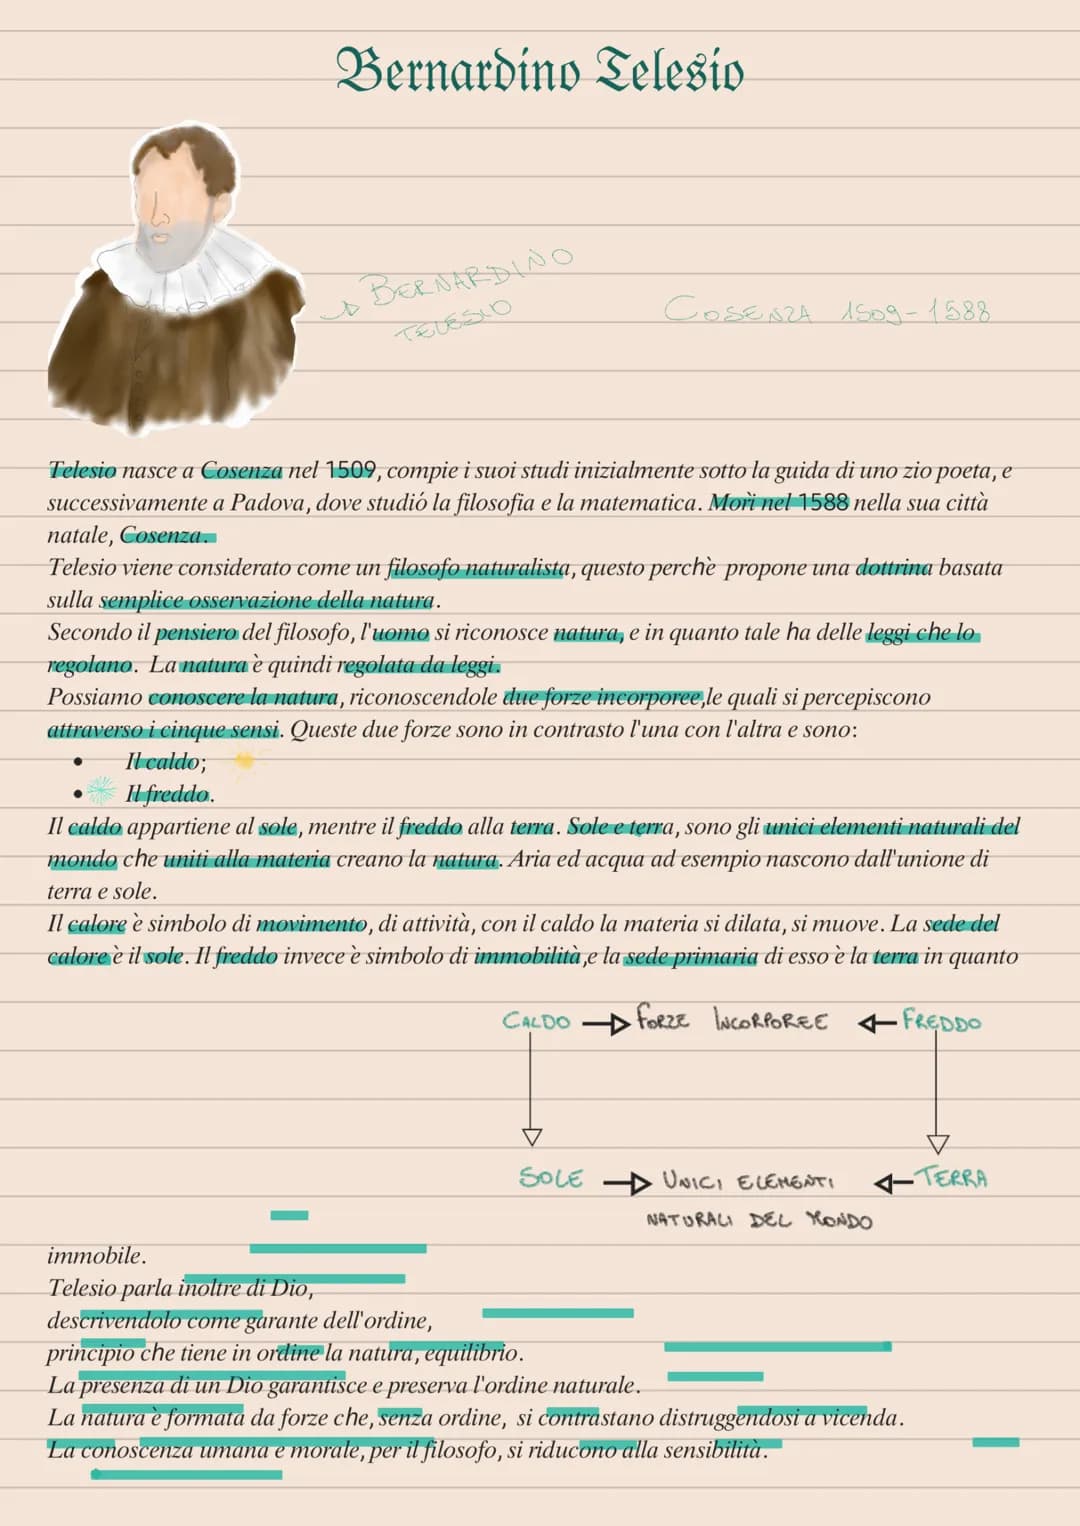 Bernardino Telesio
BERNARDINO
TELESIO
COSENZA 1509-1588
Telesio nasce a Cosenza nel 1509, compie i suoi studi inizialmente sotto la guida di uno zio poeta, e
successivamente a Padova, dove studió la filosofia e la matematica. Morì nel 1588 nella sua città
natale, Cosenza.
Telesio viene considerato come un filosofo naturalista, questo perchè propone una dottrina basata
sulla semplice osservazione della natura.
Secondo il pensiero del filosofo, l'uomo si riconosce natura, e in quanto tale ha delle leggi che lo
regolano. La natura è quindi regolata da leggi.
Possiamo conoscere la natura, riconoscendole due forze incorporee,le quali si percepiscono
attraverso i cinque sensi. Queste due forze sono in contrasto l'una con l'altra e sono:
• Il caldo;
• Il freddo.
Il caldo appartiene al sole, mentre il freddo alla terra. Sole e terra, sono gli unici elementi naturali del
mondo che uniti alla materia creano la natura. Aria ed acqua ad esempio nascono dall'unione di
terra e sole.
Il calore è simbolo di movimento, di attività, con il caldo la materia si dilata, si muove. La sede del
calore è il sole. Il freddo invece è simbolo di immobilità,e la sede primaria di esso è la terra in quanto
CALDO FORZE INCORPOREE FREDDO
SOLE UNICI ELEMENTI TERRA
NATURALI DEL MONDO
immobile.
Telesio parla inoltre di Dio,
descrivendolo come garante dell'ordine,
principio che tiene in ordine la natura, equilibrio.
La presenza di un Dio garantisce e preserva l'ordine naturale.
La natura è formata da forze che, senza ordine, si contrastano distruggendosi a vicenda.
La conoscenza umana e morale, per il filosofo, si riducono alla sensibilità.